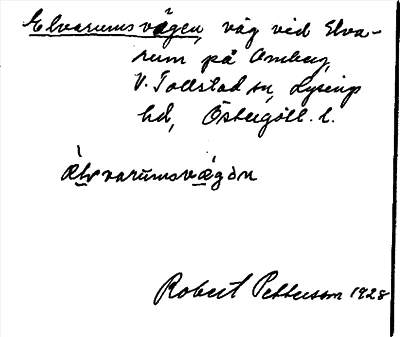 Elvarumsvägen, väg vid Elva-
rum på Omberg,
V. Tollstad sn, Lysings
hd, Östergötl. l.
älvvarumsvägən
Robert Pettersson 1928